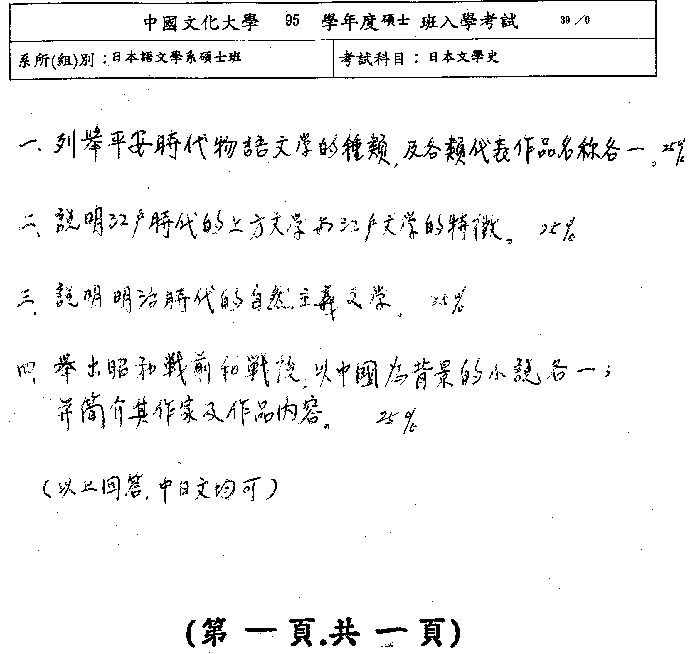 中國文化大學 95 學年度碩士班入學考試 39/0
系所(組)別：日本語文學系碩士班 考試科目：日本文學史
一、列舉平安時代物語文学的種類,及各類代表作品名称各一。25%
二、說明江戶時代的上方文学与江戶文学的特徵。 25%
三、說明明治時代的自然主義文学。 25%
四、舉出昭和戰前和戰後,以中國為背景的小說各一；
并簡介其作家及作品内容。 25%
(以上回答,中日文均可)
(第一頁.共一頁)